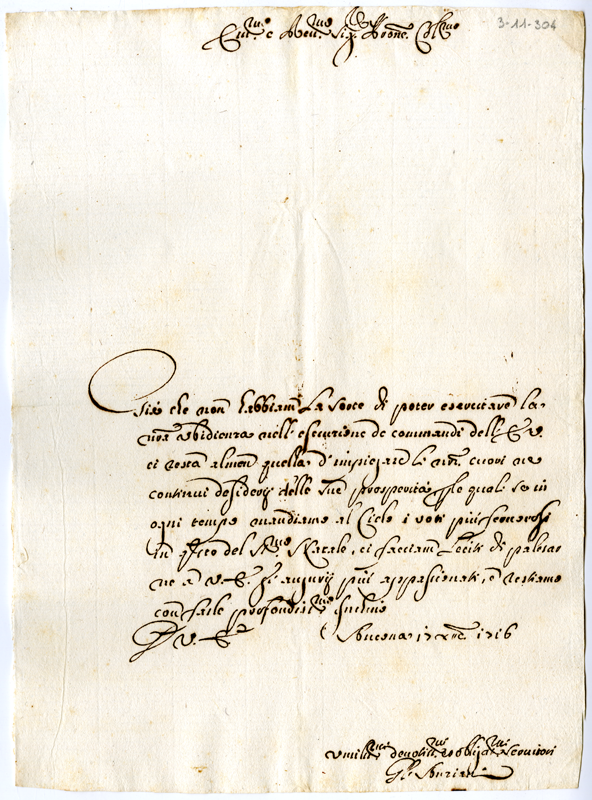 3-11-304
Em.mo e Rev.mo Sig.r Prone Col.mo
Già che non habbiam la sorte di poter esercitare la
nra ubidienza nell'esecuzione de comandi dell'E. V.
ci resta almen quella d'impiegare li nri cuori ne
continui desiderij delle sue prosperità, p le quali se in
ogni tempo mandiamo al Cielo i voti più fervorosi
in qsto del S.mo Natale, ci facciam lecito di palesar
ne a V. E. gl'augurij più appassionati, e restiamo
con farle profondiss.mo inchino
D V. E.
Ancona 17 Xbre 1716
Umiliss.mi devotiss.mi obblig.mi Servitori
Gl'Anziani